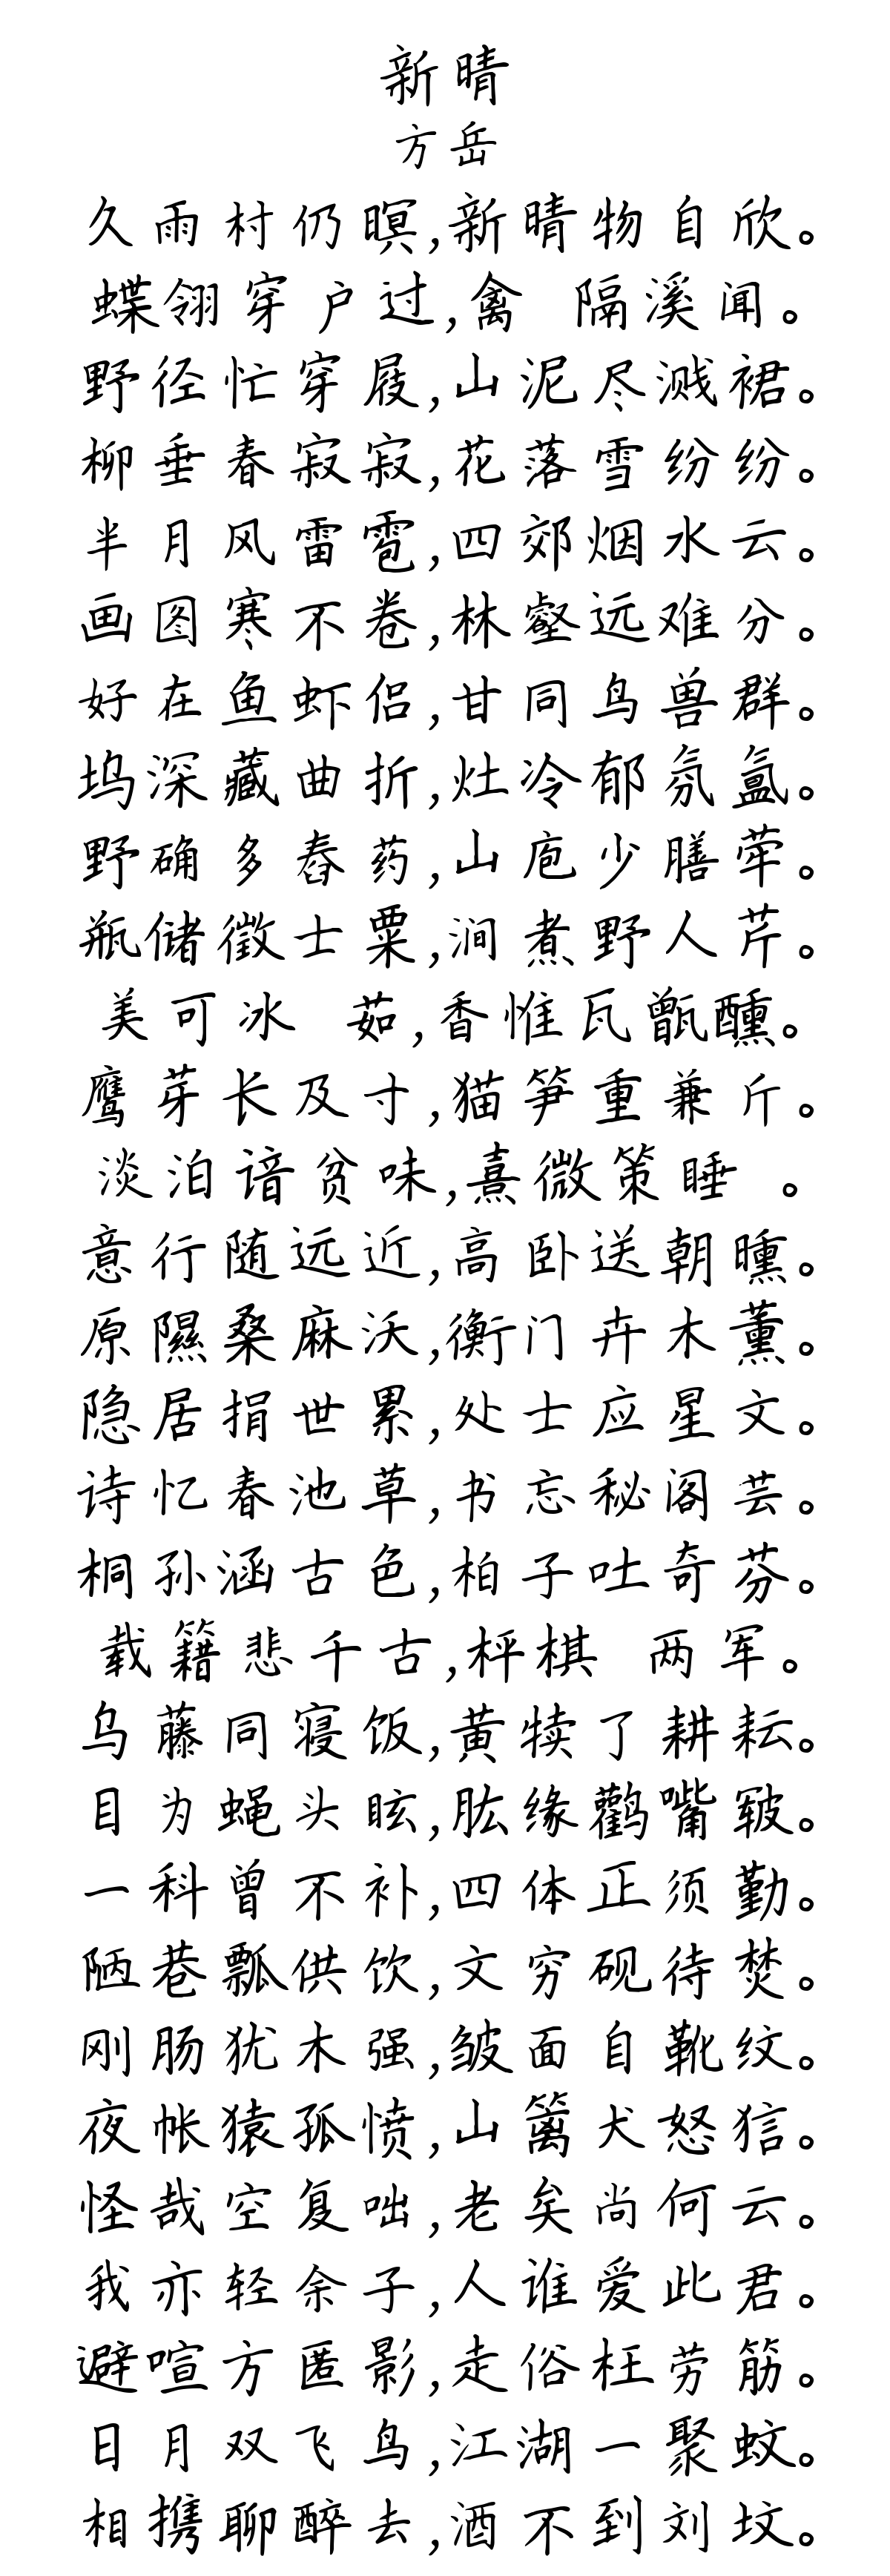 新晴
方岳
久雨村仍暝,新晴物自欣。
蝶翎穿户过,禽 隔溪闻。
野径忙穿屐,山泥尽溅裙。
柳垂春寂寂,花落雪纷纷。
半月风雷雹,四郊烟水云。
画图寒不卷,林壑远难分。
好在鱼虾侣,甘同鸟兽群。
坞深藏曲折,灶冷郁氛氲。
野确多舂药,山庖少膳荤。
瓶储徵士粟,涧煮野人芹。
美可冰 茹,香惟瓦甑醺。
鹰芽长及寸,猫笋重兼斤。
淡泊谙贫味,熹微策睡 。
意行随远近,高卧送朝曛。
原隰桑麻沃,衡门卉木薰。
隐居捐世累,处士应星文。
诗忆春池草,书忘秘阁芸。
桐孙涵古色,柏子吐奇芬。
载籍悲千古,枰棋 两军。
乌藤同寝饭,黄犊了耕耘。
目为蝇头眩,肱缘鹳嘴皲。
一科曾不补,四体正须勤。
陋巷瓢供饮,文穷砚待焚。
刚肠犹木强,皱面自靴纹。
夜帐猿孤愤,山篱犬怒狺。
怪哉空复咄,老矣尚何云。
我亦轻余子,人谁爱此君。
避喧方匿影,走俗枉劳筋。
日月双飞鸟,江湖一聚蚊。
相携聊醉去,酒不到刘坟。